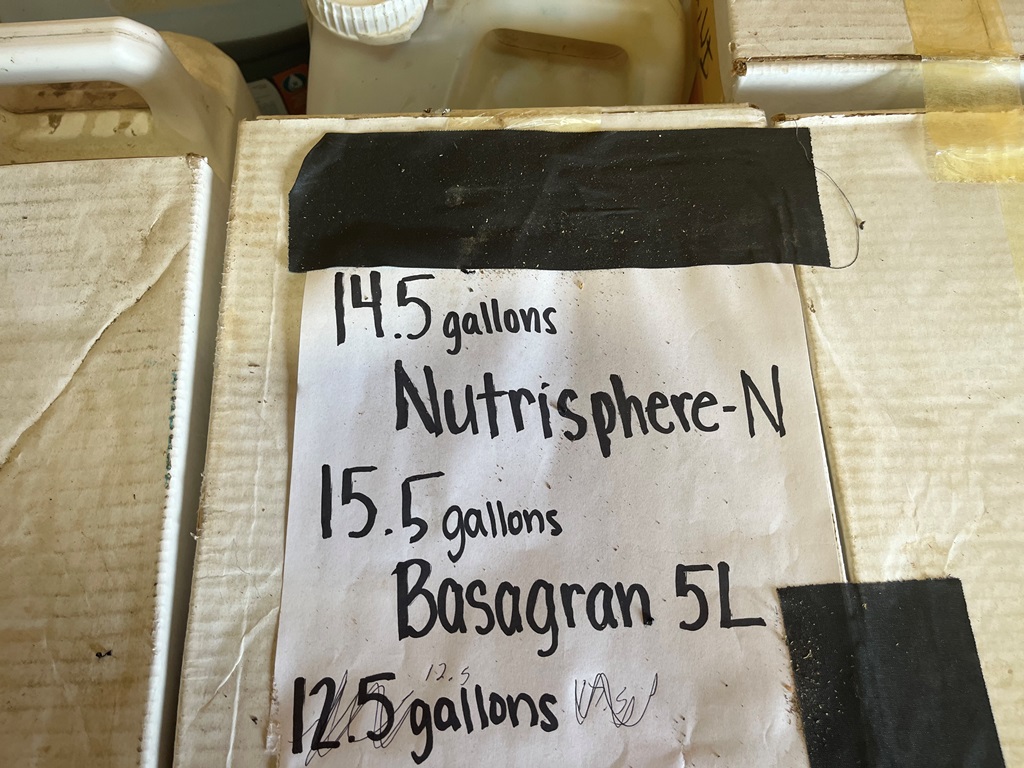 14.5 gallons
Nutrisphere-N
15.5 gallons
Basagran 5L
12.5
12.5 gallons